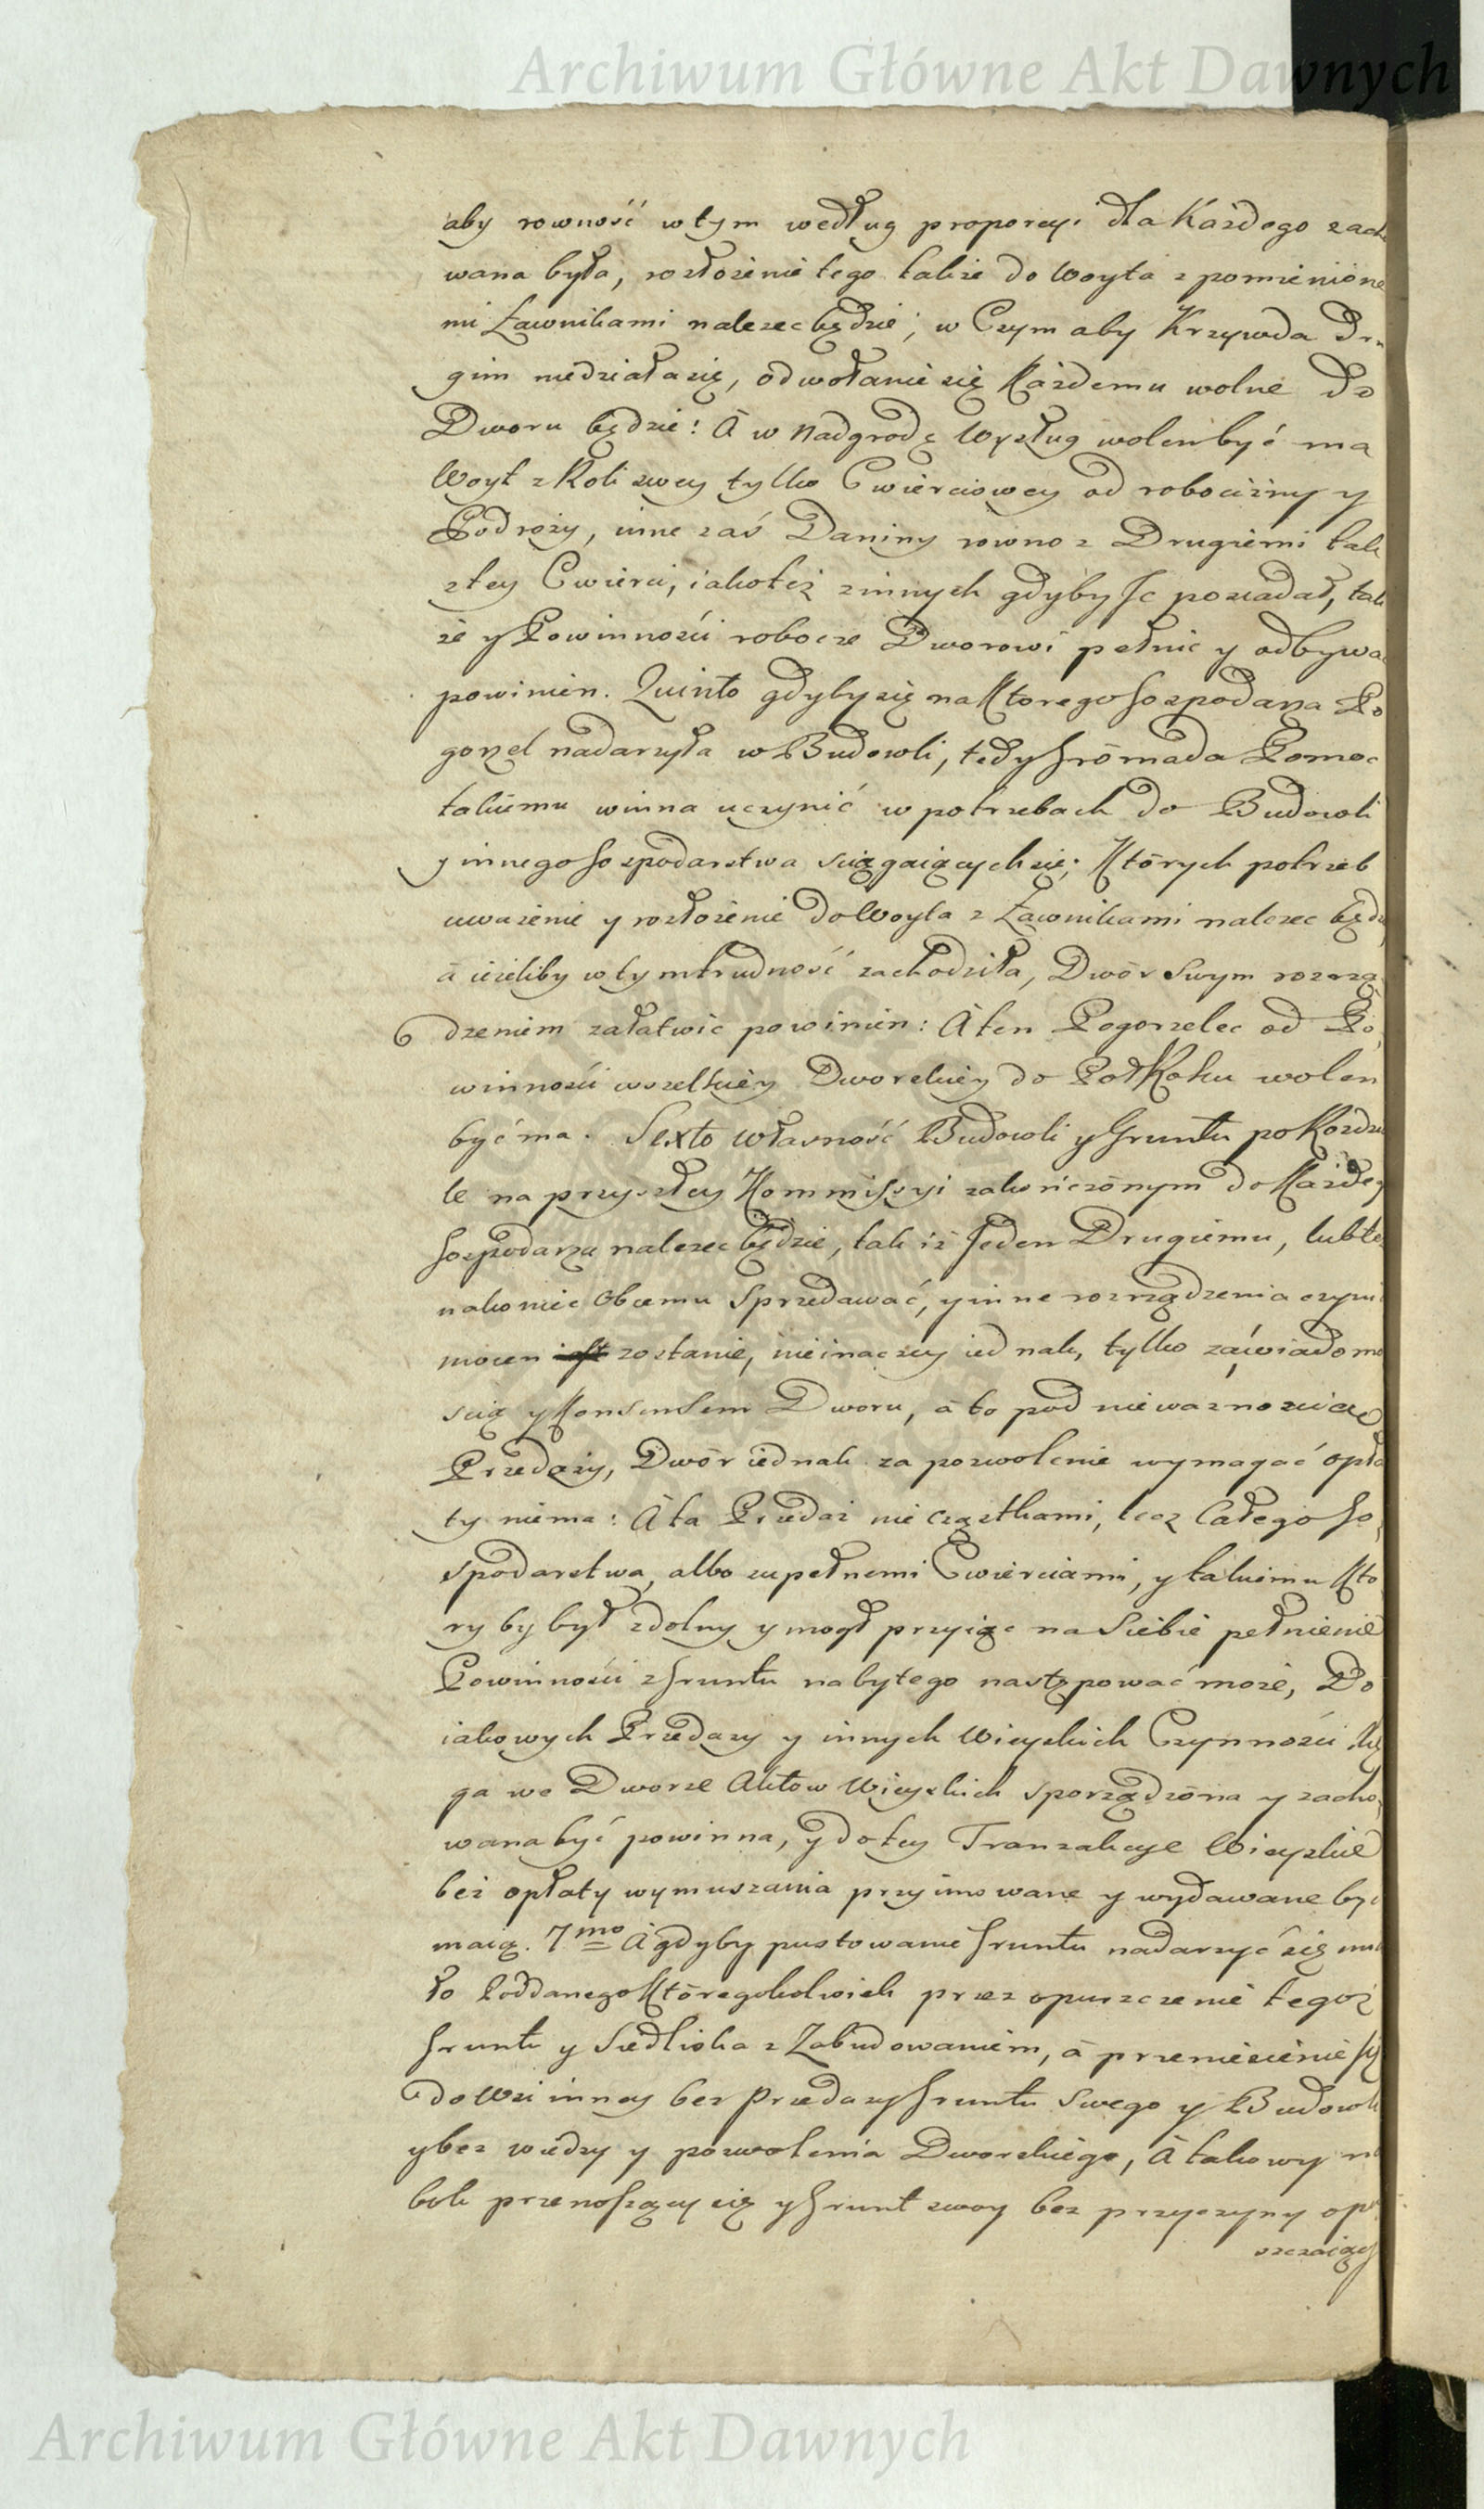 Archiwum Główne Akt Dawnych
aby rowność w tym według proporcyi dla Każdego zach
wana była, rozłożenie tego także do Woyta z pomienione
mi Ławnikami nalezec będzie; w Czym aby Krzywda Dru
gim niedziała się, odwołanie się Każdemu wolne do
Dworu będzie: A w nadgrodę Wysług wolen być ma
Woyt z Roli swey tylko Cwierciowey od robocizny y
Podroży, inne zaś Daniny rowno z Drugiemi tak
z tey Cwierci, iakoteż z innych gdyby Je posiadał, tak
że y Powinności robocze Dworowi pełnic y odbywa
powinien. Quinto gdyby się na Ktorego Gospodarza Po
gorzel nadarzyła w Budowli, tedy Grōmada Pomoc
takiemu winna uczynić w potrzebach do Budowli
y innego Gospodarstwa sciągaiących się; Których potrzeb
uważenie y rozłożenie do Woyta z Ławnikami nalezec będz
à ieżeliby w tym trudność zachodziła, Dwòr swym rozrzą
dzeniem załatwic powinien: A ten Pogorzelec od Po
winności wszelkiey Dworskiey do Poł Roku wolen
być ma. Sexto własność Budowli y Gruntu po Rozdzie
le na przyszłey Kommissyi zakończōnym do Każdeg
Gospodarza nalezec będzie, tak iż Jeden Drugiemu, lub te
nakoniec Obcemu sprzedawać, y inne rozrządzenia czyni
mocen zostanie, nieinaczey iednak, tylko za wiadomo
scią y Konsensem Dworu, à to pod nieważnoscią
Przedaży, Dwòr iednak za pozwolenie wymagać opła
ty niema: A ta Przedaż nie cząstkami, lecz Całego Go
spodarstwa, albo zupełnemi Cwierciami, y takiemu Kto
ry by był zdolny y mogł przyiąc na Siebie pełnienie
Powinności z Gruntu nabytego następować może, Do
iakowych Przedazy y innych Wieyskich Czynności Xię
ga we Dworze Aktow Wieyskich sporządzōna y zacho
wana być powinna, y do tey Tranzakcye Wieyskie
bez opłaty wymuszania przyimowane y wydawane być
maią. 7mo A gdyby pustowanie Gruntu nadarzyć się mia
ło Poddanego Któregokolwiek przez opuszczenie tegoż
Gruntu y Siedliska z Zabudowaniem, à przeniesienie się
do Wsi inney bez przedazy Gruntu swego y Budowli
y bez wiedzy y pozwolenia Dworskiego, A takowy
przenoszący się y Grunt swoy bez przyczyny opu
szczaiący
Archiwum Główne Akt Dawnych